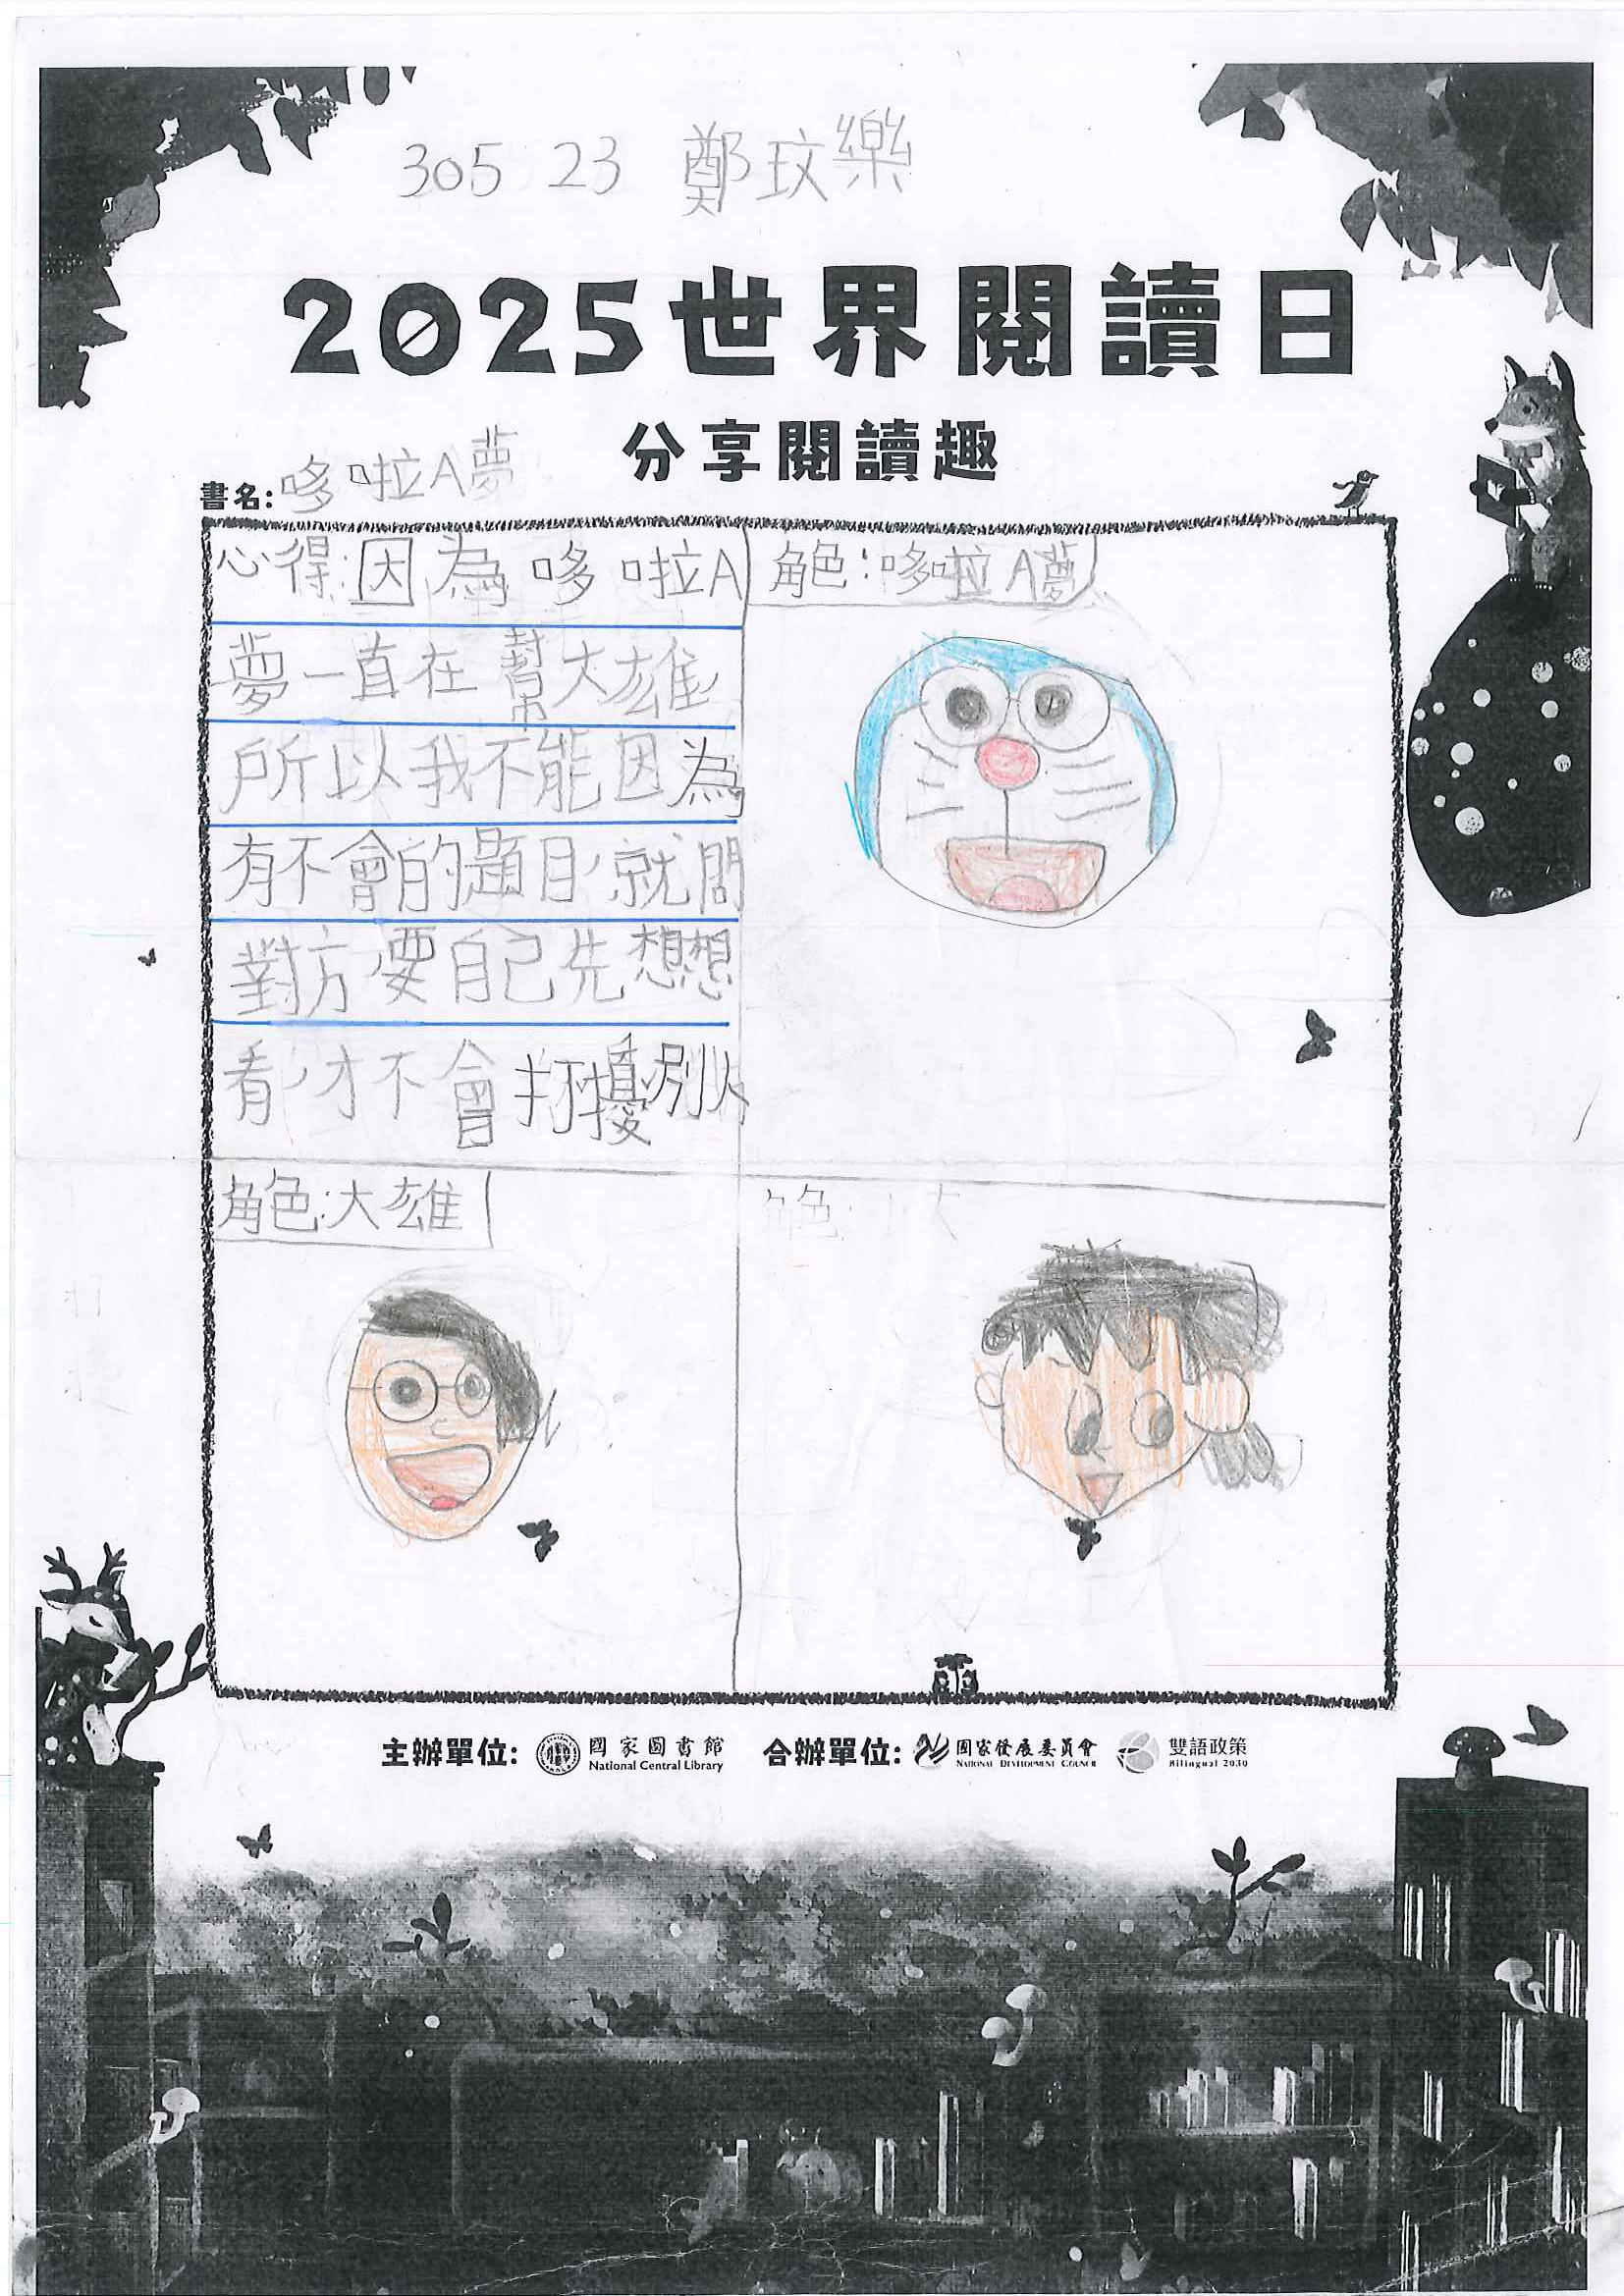 305 23 鄭玟樂
2025世界閱讀日
分享閱讀趣
書名:哆啦A夢
心得:因為哆啦A
夢一直在幫大雄
所以我不能因為
有不會的題目,就問
對方,要自己先想想
看,才不會打擾別人
角色:哆啦A夢
角色:大雄
角色:
主辦單位: 國家圖書館 National Central Library
合辦單位: 國家發展委員會 NATIONAL DEVELOPMENT COUNCIL 雙語政策 Bilingual 2030